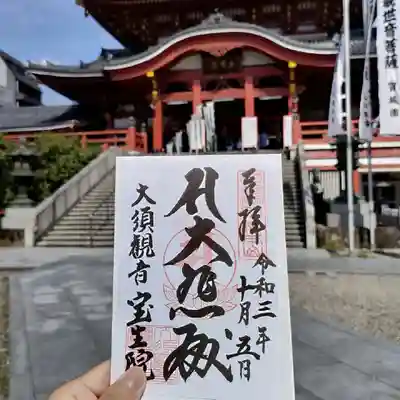 奉拝
令和三年
十月五日
大悲殿
大須観音
宝生院
世音菩薩